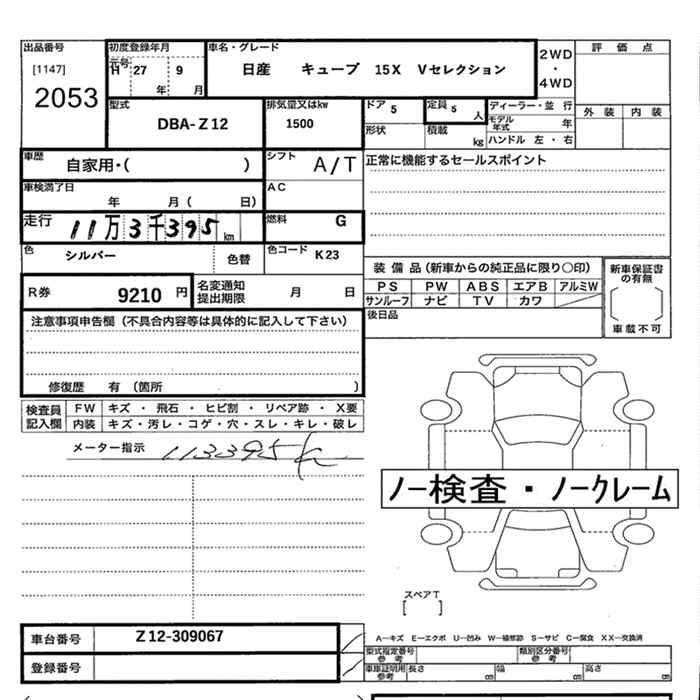 出品番号
[1147]
2053
初度登録年月
元号
H 27 9
年 月
車名・グレード
日産 キューブ 15X Vセレクション
2WD
・
4WD
評 価 点
外 装 内 装
型式
DBA-Z12
排気量又はkw
1500
ドア 5
定員 5 人
ディーラー・並 行
モデル年式 年
ハンドル 左・右
形状
積載 kg
車歴
自家用・( )
シフト
A/T
正常に機能するセールスポイント
車検満了日
年 月( 日)
AC
走行
11万3千395 km
燃料
G
色
シルバー
色替
色コード K23
装 備 品(新車からの純正品に限り〇印)
PS PW ABS エアB アルミW
サンルーフ ナビ TV カワ
新車保証書の有無
[ ]
車載不可
R券
9210 円
名変通知提出期限
月 日
後日品
注意事項申告欄(不具合内容等は具体的に記入して下さい)
修復歴 有 (箇所 )
検査員記入欄
FW キズ・飛石・ヒビ割・リペア跡・X要
内装 キズ・汚レ・コゲ・穴・スレ・キレ・破レ
メーター指示 113395K
ノー検査・ノークレーム
スペアT
[ ]
車台番号
Z12-309067
登録番号
A―キズ E―エクボ U―凹み W―補修跡 S―サビ C―腐食 XX―交換済
型式指定番号 参考
類別区分番号 参考
車庫証明用 参考
長さ cm
幅 cm
高さ cm